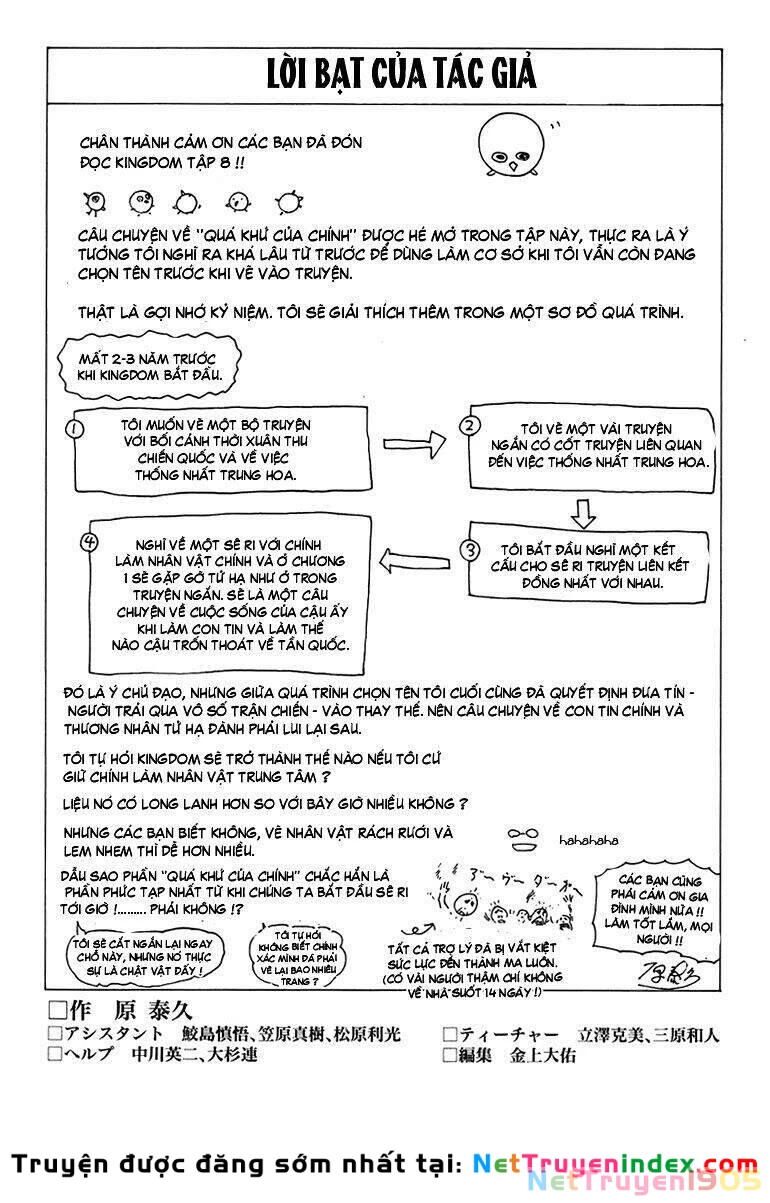 LỜI BẠT CỦA TÁC GIẢ
CHÂN THÀNH CẢM ƠN CÁC BẠN ĐÃ ĐÓN
ĐỌC KINGDOM TẬP 8 !!
CÂU CHUYỆN VỀ "QUÁ KHỨ CỦA CHÍNH" ĐƯỢC HÉ MỞ TRONG TẬP NÀY, THỰC RA LÀ Ý
TƯỞNG TÔI NGHĨ RA KHÁ LÂU TỪ TRƯỚC ĐỂ DÙNG LÀM CƠ SỞ KHI TÔI VẪN CÒN ĐANG
CHỌN TÊN TRƯỚC KHI VẼ VÀO TRUYỆN.
THẬT LÀ GỢI NHỚ KỶ NIỆM. TÔI SẼ GIẢI THÍCH THÊM TRONG MỘT SƠ ĐỒ QUÁ TRÌNH.
MẤT 2-3 NĂM TRƯỚC
KHI KINGDOM BẮT ĐẦU.
1
TÔI MUỐN VẼ MỘT BỘ TRUYỆN
VỚI BỐI CẢNH THỜI XUÂN THU
CHIẾN QUỐC VÀ VỀ VIỆC
THỐNG NHẤT TRUNG HOA.
2
TÔI VẼ MỘT VÀI TRUYỆN
NGẮN CÓ CỐT TRUYỆN LIÊN QUAN
ĐẾN VIỆC THỐNG NHẤT TRUNG HOA.
3
TÔI BẮT ĐẦU NGHĨ MỘT KẾT
CẤU CHO SÊ RI TRUYỆN LIÊN KẾT
ĐỒNG NHẤT VỚI NHAU.
4
NGHĨ VỀ MỘT SÊ RI VỚI CHÍNH
LÀM NHÂN VẬT CHÍNH VÀ Ở CHƯƠNG
1 SẼ GẶP GỠ TỬ HẠ NHƯ Ở TRONG
TRUYỆN NGẮN. SẼ LÀ MỘT CÂU
CHUYỆN VỀ CUỘC SỐNG CỦA CẬU ẤY
KHI LÀM CON TIN VÀ LÀM THẾ
NÀO CẬU TRỐN THOÁT VỀ TẦN QUỐC.
ĐÓ LÀ Ý CHỦ ĐẠO, NHƯNG GIỮA QUÁ TRÌNH CHỌN TÊN TÔI CUỐI CÙNG ĐÃ QUYẾT ĐỊNH ĐƯA TÍN -
NGƯỜI TRẢI QUA VÔ SỐ TRẬN CHIẾN - VÀO THAY THẾ. NÊN CÂU CHUYỆN VỀ CON TIN CHÍNH VÀ
THƯƠNG NHÂN TỬ HẠ ĐÀNH PHẢI LUI LẠI SAU.
TÔI TỰ HỎI KINGDOM SẼ TRỞ THÀNH THẾ NÀO NẾU TÔI CỨ
GIỮ CHÍNH LÀM NHÂN VẬT TRUNG TÂM ?
LIỆU NÓ CÓ LONG LANH HƠN SO VỚI BÂY GIỜ NHIỀU KHÔNG ?
NHƯNG CÁC BẠN BIẾT KHÔNG, VẼ NHÂN VẬT RÁCH RƯỚI VÀ
LEM NHEM THÌ DỄ HƠN NHIỀU.
hahahaha
DẦU SAO PHẦN "QUÁ KHỨ CỦA CHÍNH" CHẮC HẲN LÀ
PHẦN PHỨC TẠP NHẤT TỪ KHI CHÚNG TA BẮT ĐẦU SÊ RI
TỚI GIỜ !......... PHẢI KHÔNG !?
TÔI SẼ CẮT NGẮN LẠI NGAY
CHỖ NÀY, NHƯNG NÓ THỰC
SỰ LÀ CHẬT VẬT ĐẤY !
TÔI TỰ HỎI
KHÔNG BIẾT CHÍNH
XÁC MÌNH ĐÃ PHẢI
VẼ LẠI BAO NHIÊU
TRANG ?
TẤT CẢ TRỢ LÝ ĐÃ BỊ VẮT KIỆT
SỨC LỰC ĐẾN THÀNH MA LUÔN.
(CÓ VÀI NGƯỜI THẬM CHÍ KHÔNG
VỀ NHÀ SUỐT 14 NGÀY !)
CÁC BẠN CŨNG
PHẢI CẢM ƠN GIA
ĐÌNH MÌNH NỮA !!
LÀM TỐT LẮM, MỌI
NGƯỜI !!
□作 原 泰久
□アシスタント 鮫島慎悟、笠原真樹、松原利光
□ティーチャー 立澤克美、三原和人
□ヘルプ 中川英二、大杉連
□編集 金上大佑
Truyện được đăng sớm nhất tại: NetTruyenindex.com
NetTruyen1905